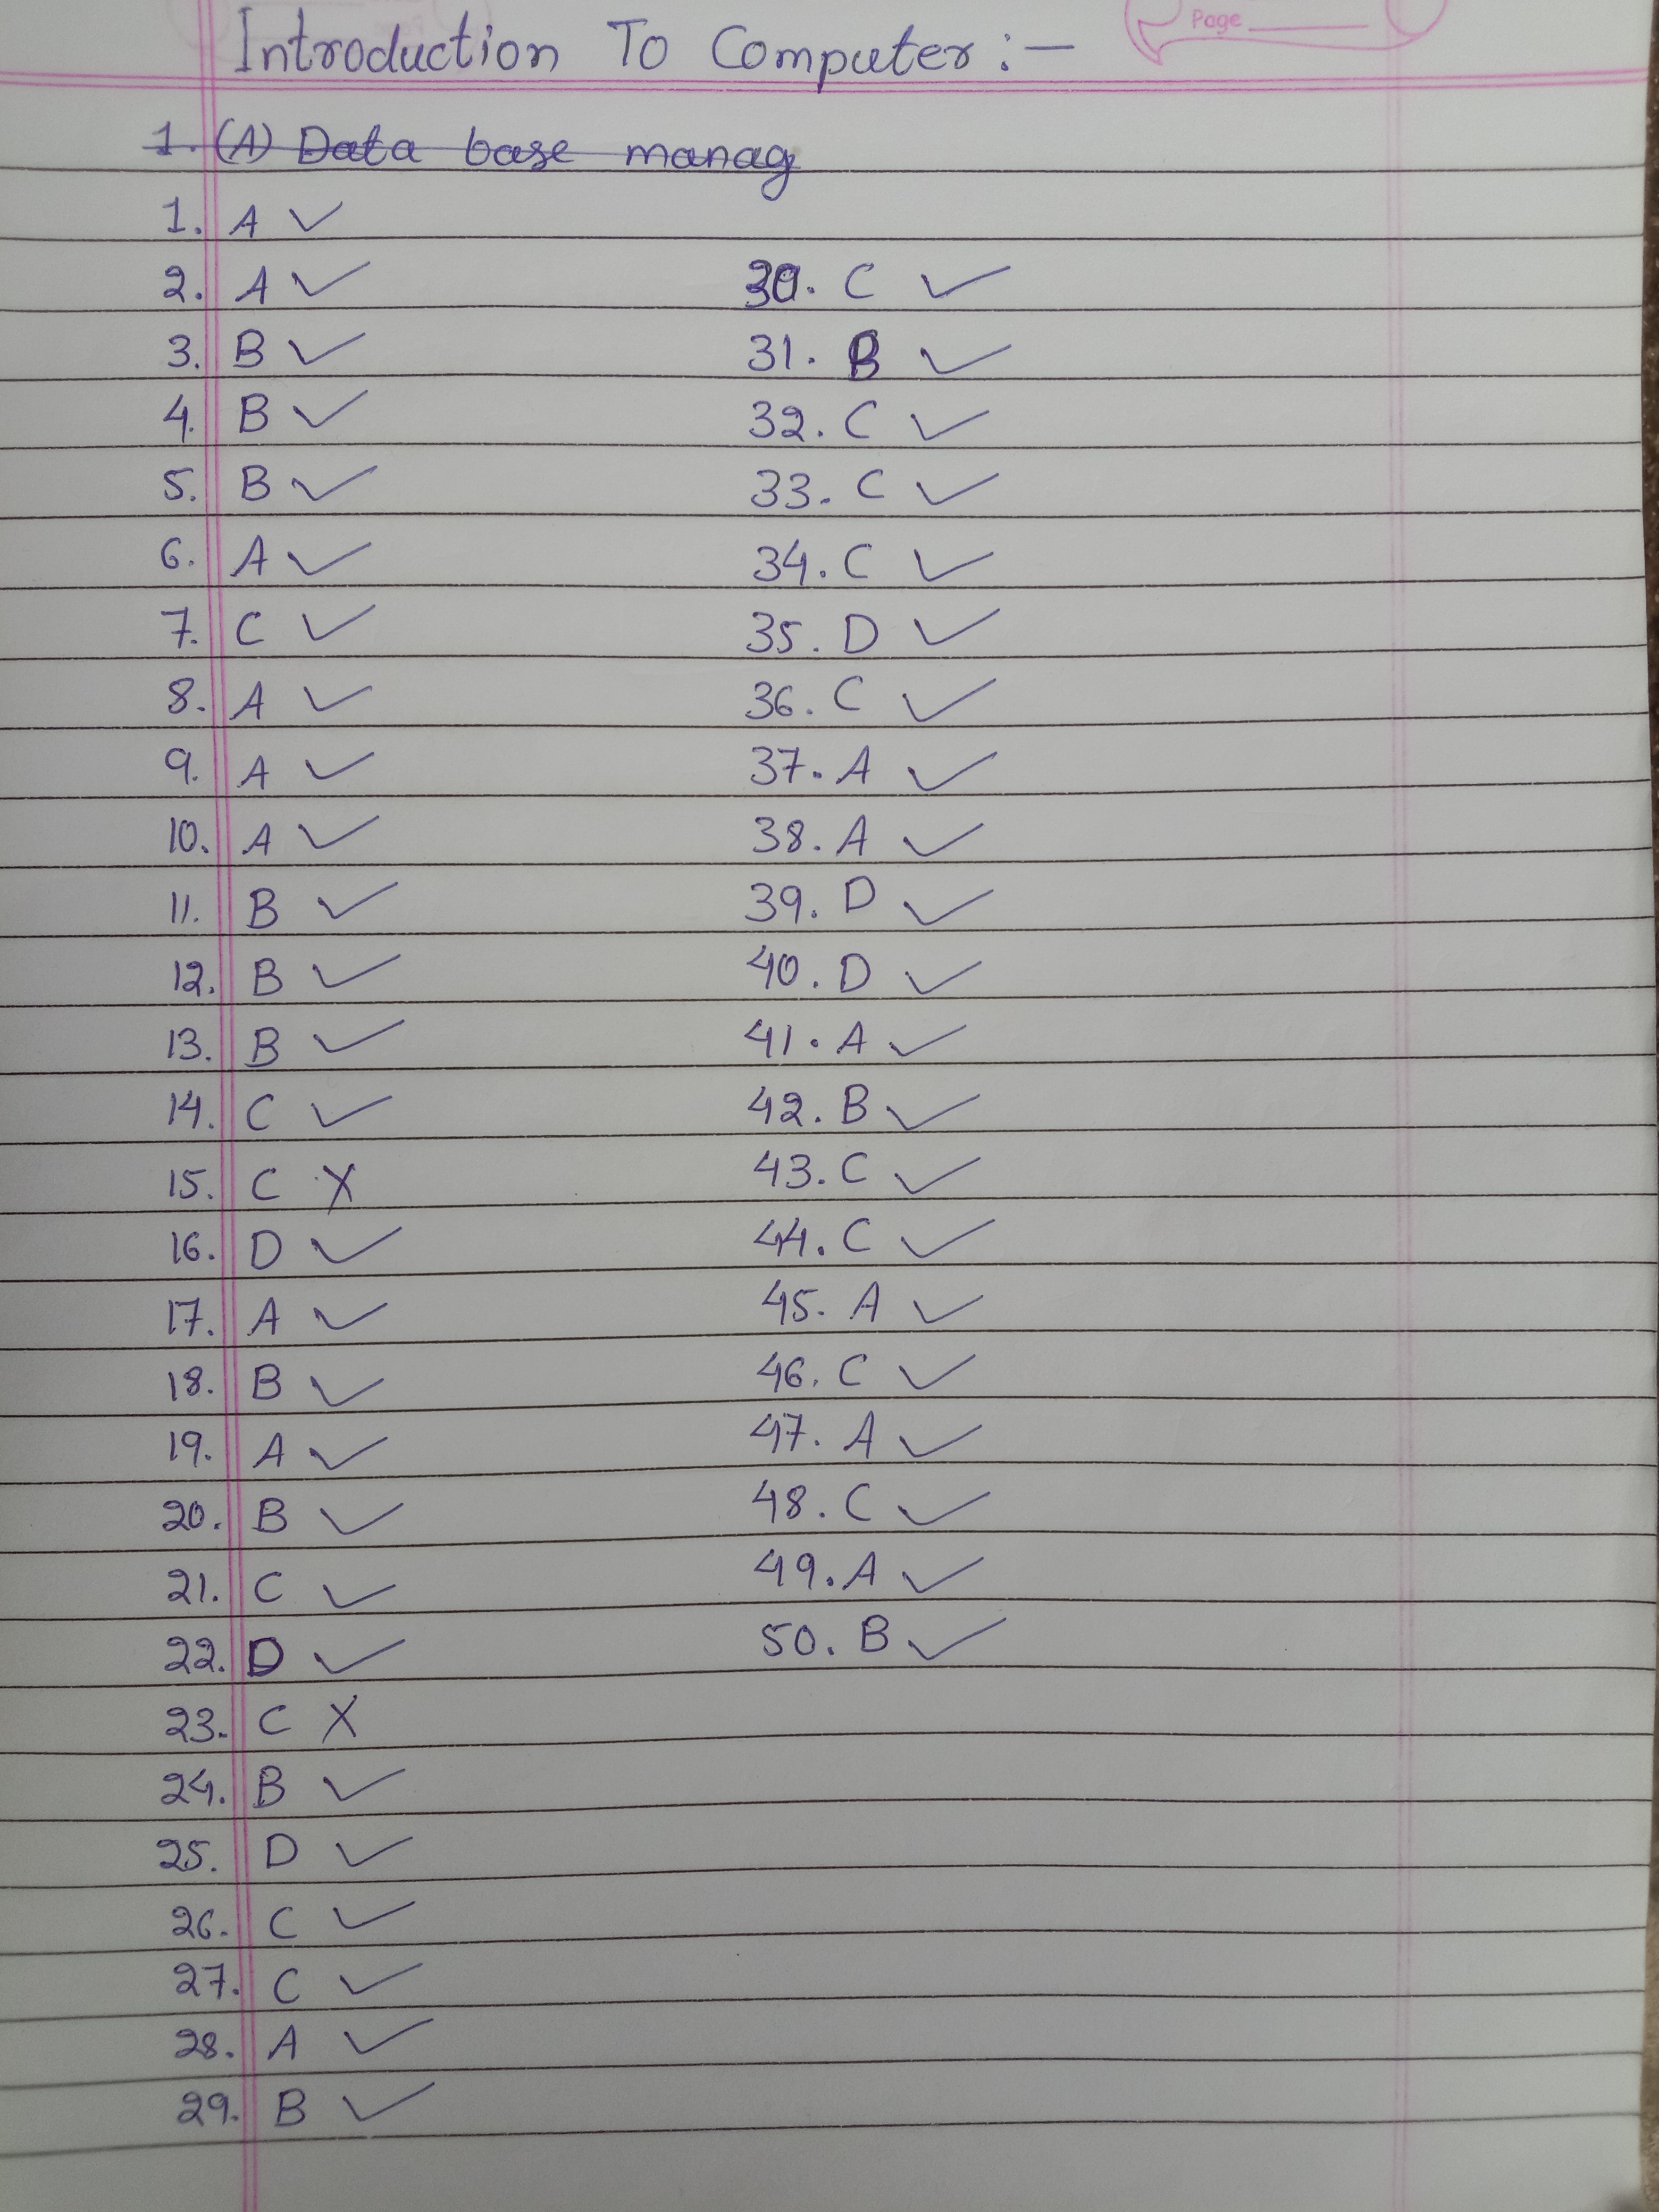 Page
Introduction To Computer :-
1. (A) Data base manag
1. A ✓
2. A ✓
3. B ✓
4. B ✓
5. B ✓
6. A ✓
7. C ✓
8. A ✓
9. A ✓
10. A ✓
11. B ✓
12. B ✓
13. B ✓
14. C ✓
15. C X
16. D ✓
17. A ✓
18. B ✓
19. A ✓
20. B ✓
21. C ✓
22. D ✓
23. C X
24. B ✓
25. D ✓
26. C ✓
27. C ✓
28. A ✓
29. B ✓
30. C ✓
31. B ✓
32. C ✓
33. C ✓
34. C ✓
35. D ✓
36. C ✓
37. A ✓
38. A ✓
39. D ✓
40. D ✓
41. A ✓
42. B ✓
43. C ✓
44. C ✓
45. A ✓
46. C ✓
47. A ✓
48. C ✓
49. A ✓
50. B ✓